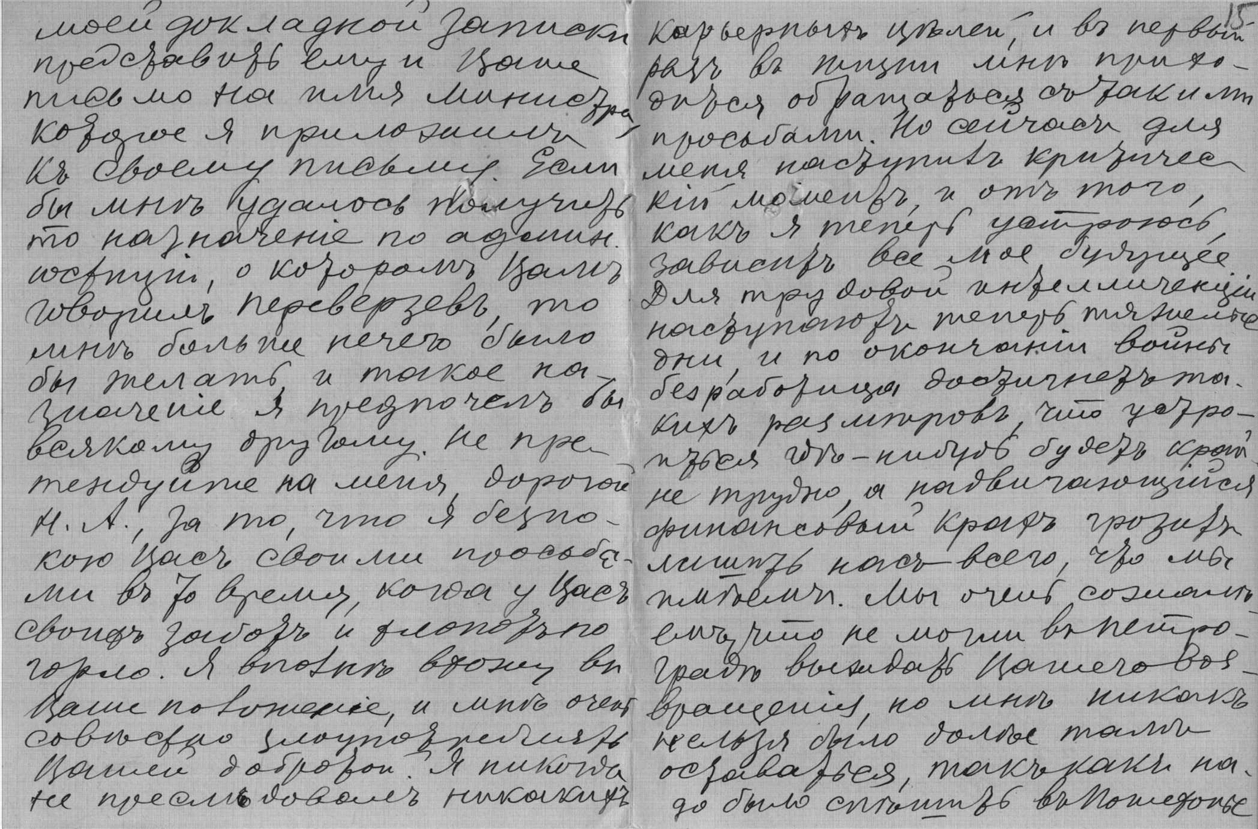 моей докладной записки
представить ему и Ваше
письмо на имя министра,
которое я приложилъ
къ своему письму. Если
бы мнѣ удалось получить
то назначеніе по админ.
юстиціи, о которомъ Вамъ
говорилъ Переверзевъ, то
мнѣ больше нечего было
бы желать, и такое на-
значеніе я предпочелъ бы
всякому другому. Не пре-
тендуйте на меня, дорогой
Н. А., за то, что я безпо-
кою Васъ своими просьба-
ми въ то время, когда у Васъ
своихъ заботъ и хлопотъ по
горло. Я вполнѣ вхожу въ
Ваше положеніе, и мнѣ очень
совѣстно злоупотреблять
Вашей добротой. Я никогда
не преслѣдовалъ никакихъ
15
карьерныхъ цѣлей, и въ первый
разъ въ жизни мнѣ прихо-
дится обращаться съ такими
просьбами. Но сейчасъ для
меня наступилъ критичес
кій моментъ, и отъ того,
какъ я теперь устроюсь,
зависитъ все мое будущее.
Для трудовой интеллигенціи
наступаютъ теперь тяжелые
дни, и по окончаніи войны
безработица достигнетъ та-
кихъ размѣровъ, что устро-
иться гдѣ-нибудь будетъ край-
не трудно, а надвигающійся
финансовый крахъ грозитъ
лишить насъ всего, что мы
имѣемъ. Мы очень сожалѣ
емъ, что не могли въ Петро-
градѣ выждать Вашего воз-
вращенія, но мнѣ никакъ
нельзя было долѣе тамъ
оставаться, такъ какъ на-
до было спѣшить въ Пошехонье